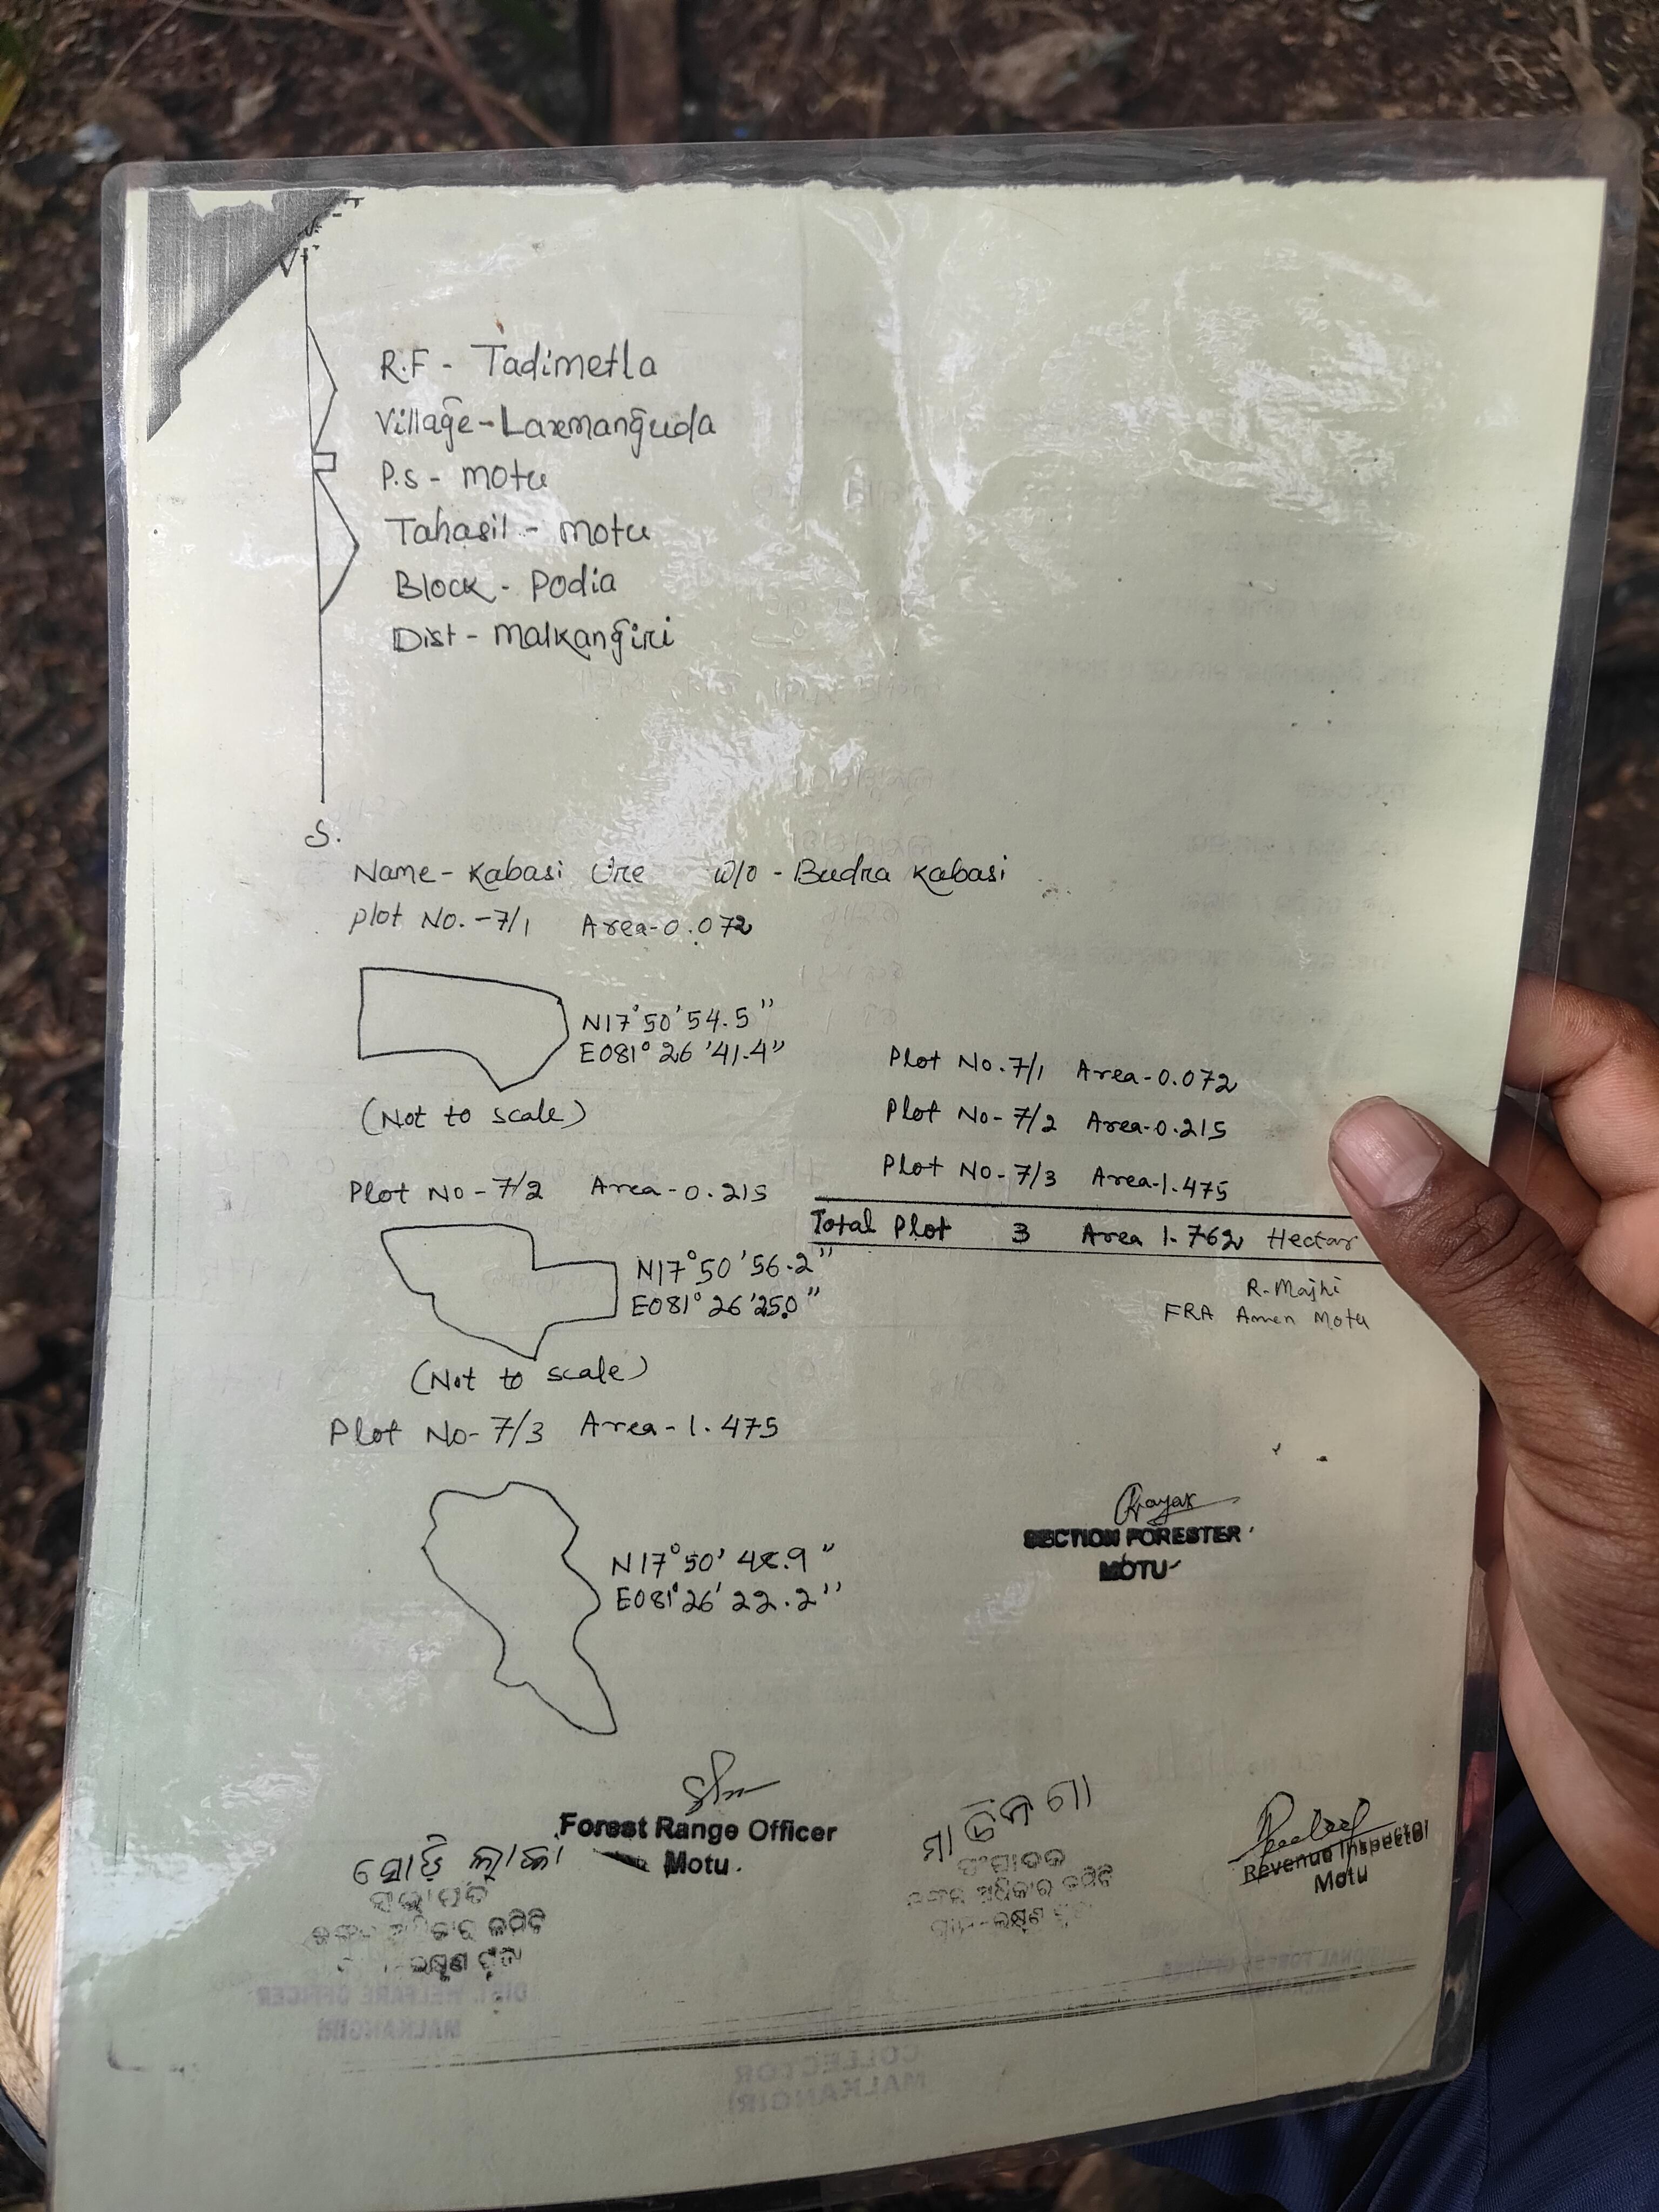 R.F - Tadimetla
Village - Laxmanguda
P.s - motu
Tahasil - motu
Block - Podia
Dist - Malkangiri
S.
Name - Kabasi Ure w/o - Budra Kabasi
Plot No. - 7/1 Area - 0.072
N17°50'54.5"
E081°26'41.4"
(Not to scale)
Plot No - 7/2 Area - 0.215
N17°50'56.2"
E081°26'25.0"
(Not to scale)
Plot No - 7/3 Area - 1.475
N17°50'
E081°26'22.2"
Plot No. 7/1 Area - 0.072
Plot No - 7/2 Area - 0.215
Plot No - 7/3 Area - 1.475
Total Plot 3 Area 1.762 Hectar
R. Majhi
FRA Amen Motu
SECTION FORESTER
MOTU
Forest Range Officer
Motu.
ସଭାପତି
ଜଙ୍ଗଲ ଅଧିକାର କମିଟି
ସଂପାଦକ
ଜଙ୍ଗଲ ଅଧିକାର କମିଟି
Revenue Inspector
Motu
DIST. WELFARE OFFICER
MALKANGIRI
COLLECTOR
MALKANGIRI